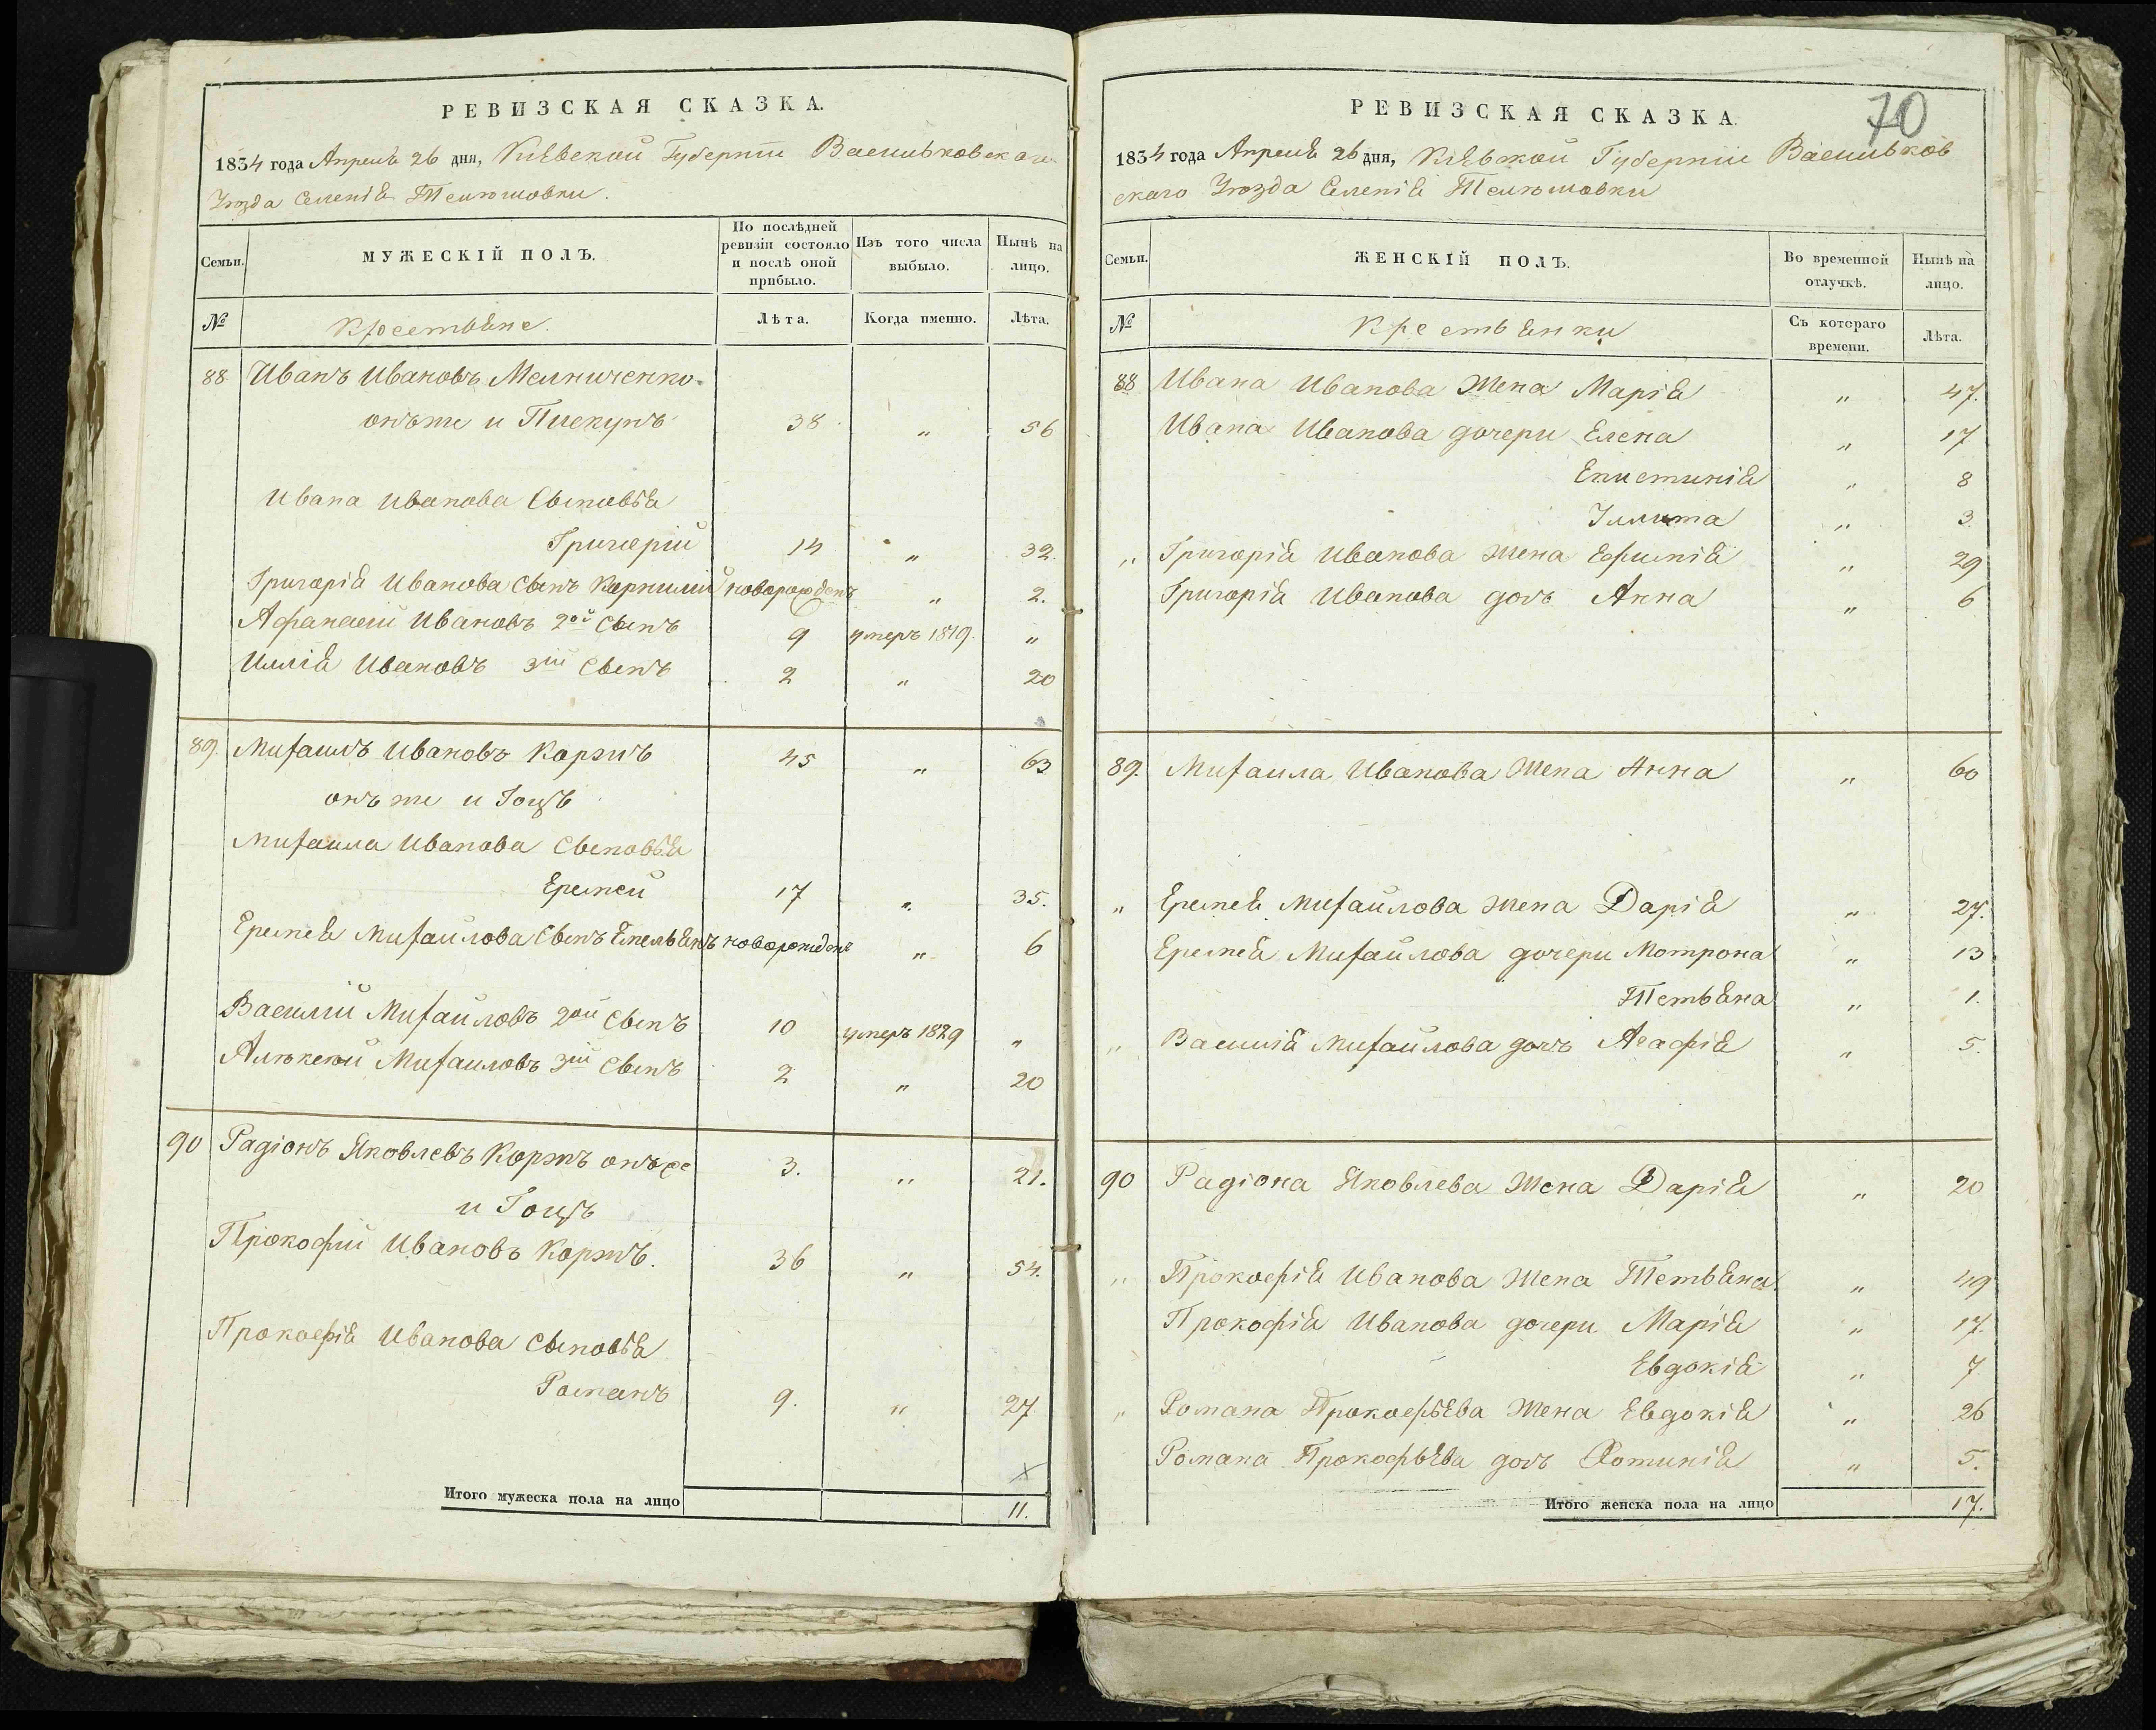 РЕВИЗСКАЯ СКАЗКА.
1834 года Апреля 26 дня, Кіевской Губерніи Васильковскаго
Уѣзда Селенія Телѣшовки.
Семьи.
МУЖЕСКІЙ ПОЛЪ.
По послѣдней ревизіи состояло и послѣ оной прибыло.
Изъ того числа выбыло.
Нынѣ на лицо.
№ Крестьяне. Лѣта. Когда именно. Лѣта.
88 Иванъ Ивановъ Мелниченко
онъже и Пискунъ 38 " 56
Ивана Иванова Сыновья
Григорій 14 " 32.
Григорія Иванова Сынъ Корнилій новорожденъ " 2.
Афанасій Ивановъ 2ой Сынъ 9 умеръ 1819. "
Иллія Ивановъ 3ій Сынъ 2 " 20
89. Михаилъ Ивановъ Коржъ 45 " 63
онъже и Гоцъ
Михаила Иванова Сыновья
Еремей 17 " 35.
Еремея Михайлова Сынъ Емельянъ новорожденъ " 6
Василій Михайловъ 2ой Сынъ 10 умеръ 1829 "
Алѣксей Михаиловъ 3ій Сынъ 2 " 20
90 Радіонъ Яковлевъ Коржъ онъже 3. " 21.
и Гоцъ
Прокофій Ивановъ Коржъ. 36 " 54.
Прокофія Иванова Сыновья
Романъ 9. " 27
Итого мужеска пола на лицо 11.
70
РЕВИЗСКАЯ СКАЗКА.
1834 года Апреля 26 дня, Кіевской Губерніи Васильков
скаго Уѣзда Селенія Телѣшовки
Семьи.
ЖЕНСКІЙ ПОЛЪ.
Во временной отлучкѣ.
Нынѣ на лицо.
№ Крестьянки Съ котораго времени. Лѣта.
88 Ивана Иванова Жена Марія " 47.
Ивана Иванова дочери Елена " 17
Епистинія " 8
Улита " 3.
" Григорія Иванова Жена Ефимія " 29
Григорія Иванова доч Анна " 6
89. Михаила Иванова Жена Анна " 60
" Еремея Михайлова Жена Дарія " 27.
Еремея Михайлова дочери Мотрона " 13
Тетьяна " 1.
" Василія Михайлова дочъ Агафія " 5.
90 Радіона Яковлева Жена Дарія " 20
" Прокофія Иванова Жена Тетьяна " 49
Прокофія Иванова дочери Марія " 17.
Евдокія " 7
" Романа Прокофьева Жена Евдокія " 26
Романа Прокофьева доч Фотинія " 5.
Итого женска пола на лицо 17.